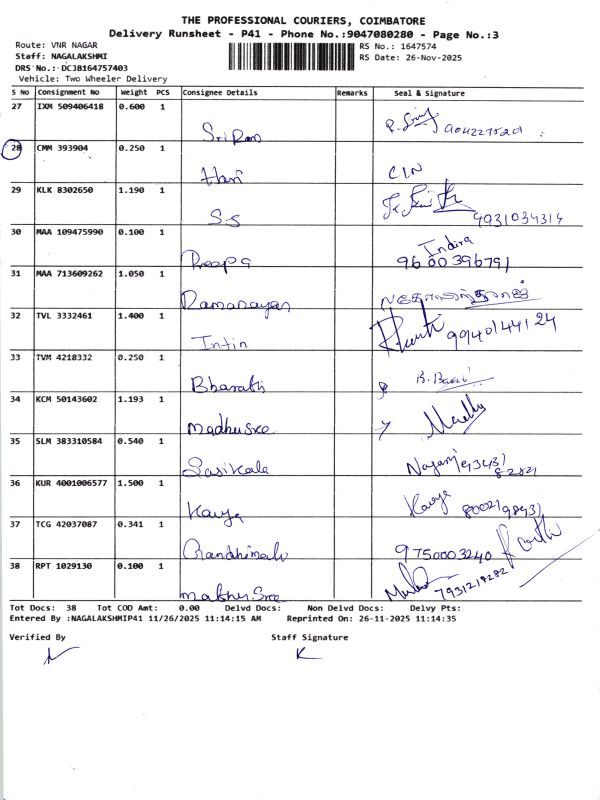 THE PROFESSIONAL COURIERS, COIMBATORE
Delivery Runsheet - P41 - Phone No.:9047080280 - Page No.:3
Route: VNR NAGAR
Staff: NAGALAKSHMI
DRS No.: DCJB164757403
Vehicle: Two Wheeler Delivery
RS No.: 1647574
RS Date: 26-Nov-2025
S No Consignment No Weight PCS Consignee Details Remarks Seal & Signature
27 IXM 509406418 0.600 1
Sri Ram
28 CMM 393904 0.250 1
Hari CIN
29 KLK 8302650 1.190 1
SS 4931034314
30 MAA 109475990 0.100 1
Indira
9600396791
31 MAA 713609262 1.050 1
Ramanayan
32 TVL 3332461 1.400 1
9940144124
33 TVM 4218332 0.250 1
Bharath
34 KCM 50143602 1.193 1
Madhu Sree
35 SLM 383310584 0.540 1
Sasikala
36 KUR 4001006577 1.500 1
Kavya Kavya
37 TCG 42037087 0.341 1
9750003240
38 RPT 1029130 0.100 1
7931218282
Tot Docs: 38 Tot COD Amt: 0.00 Delvd Docs: Non Delvd Docs: Delvy Pts:
Entered By :NAGALAKSHMIP41 11/26/2025 11:14:15 AM Reprinted On: 26-11-2025 11:14:35
Verified By Staff Signature